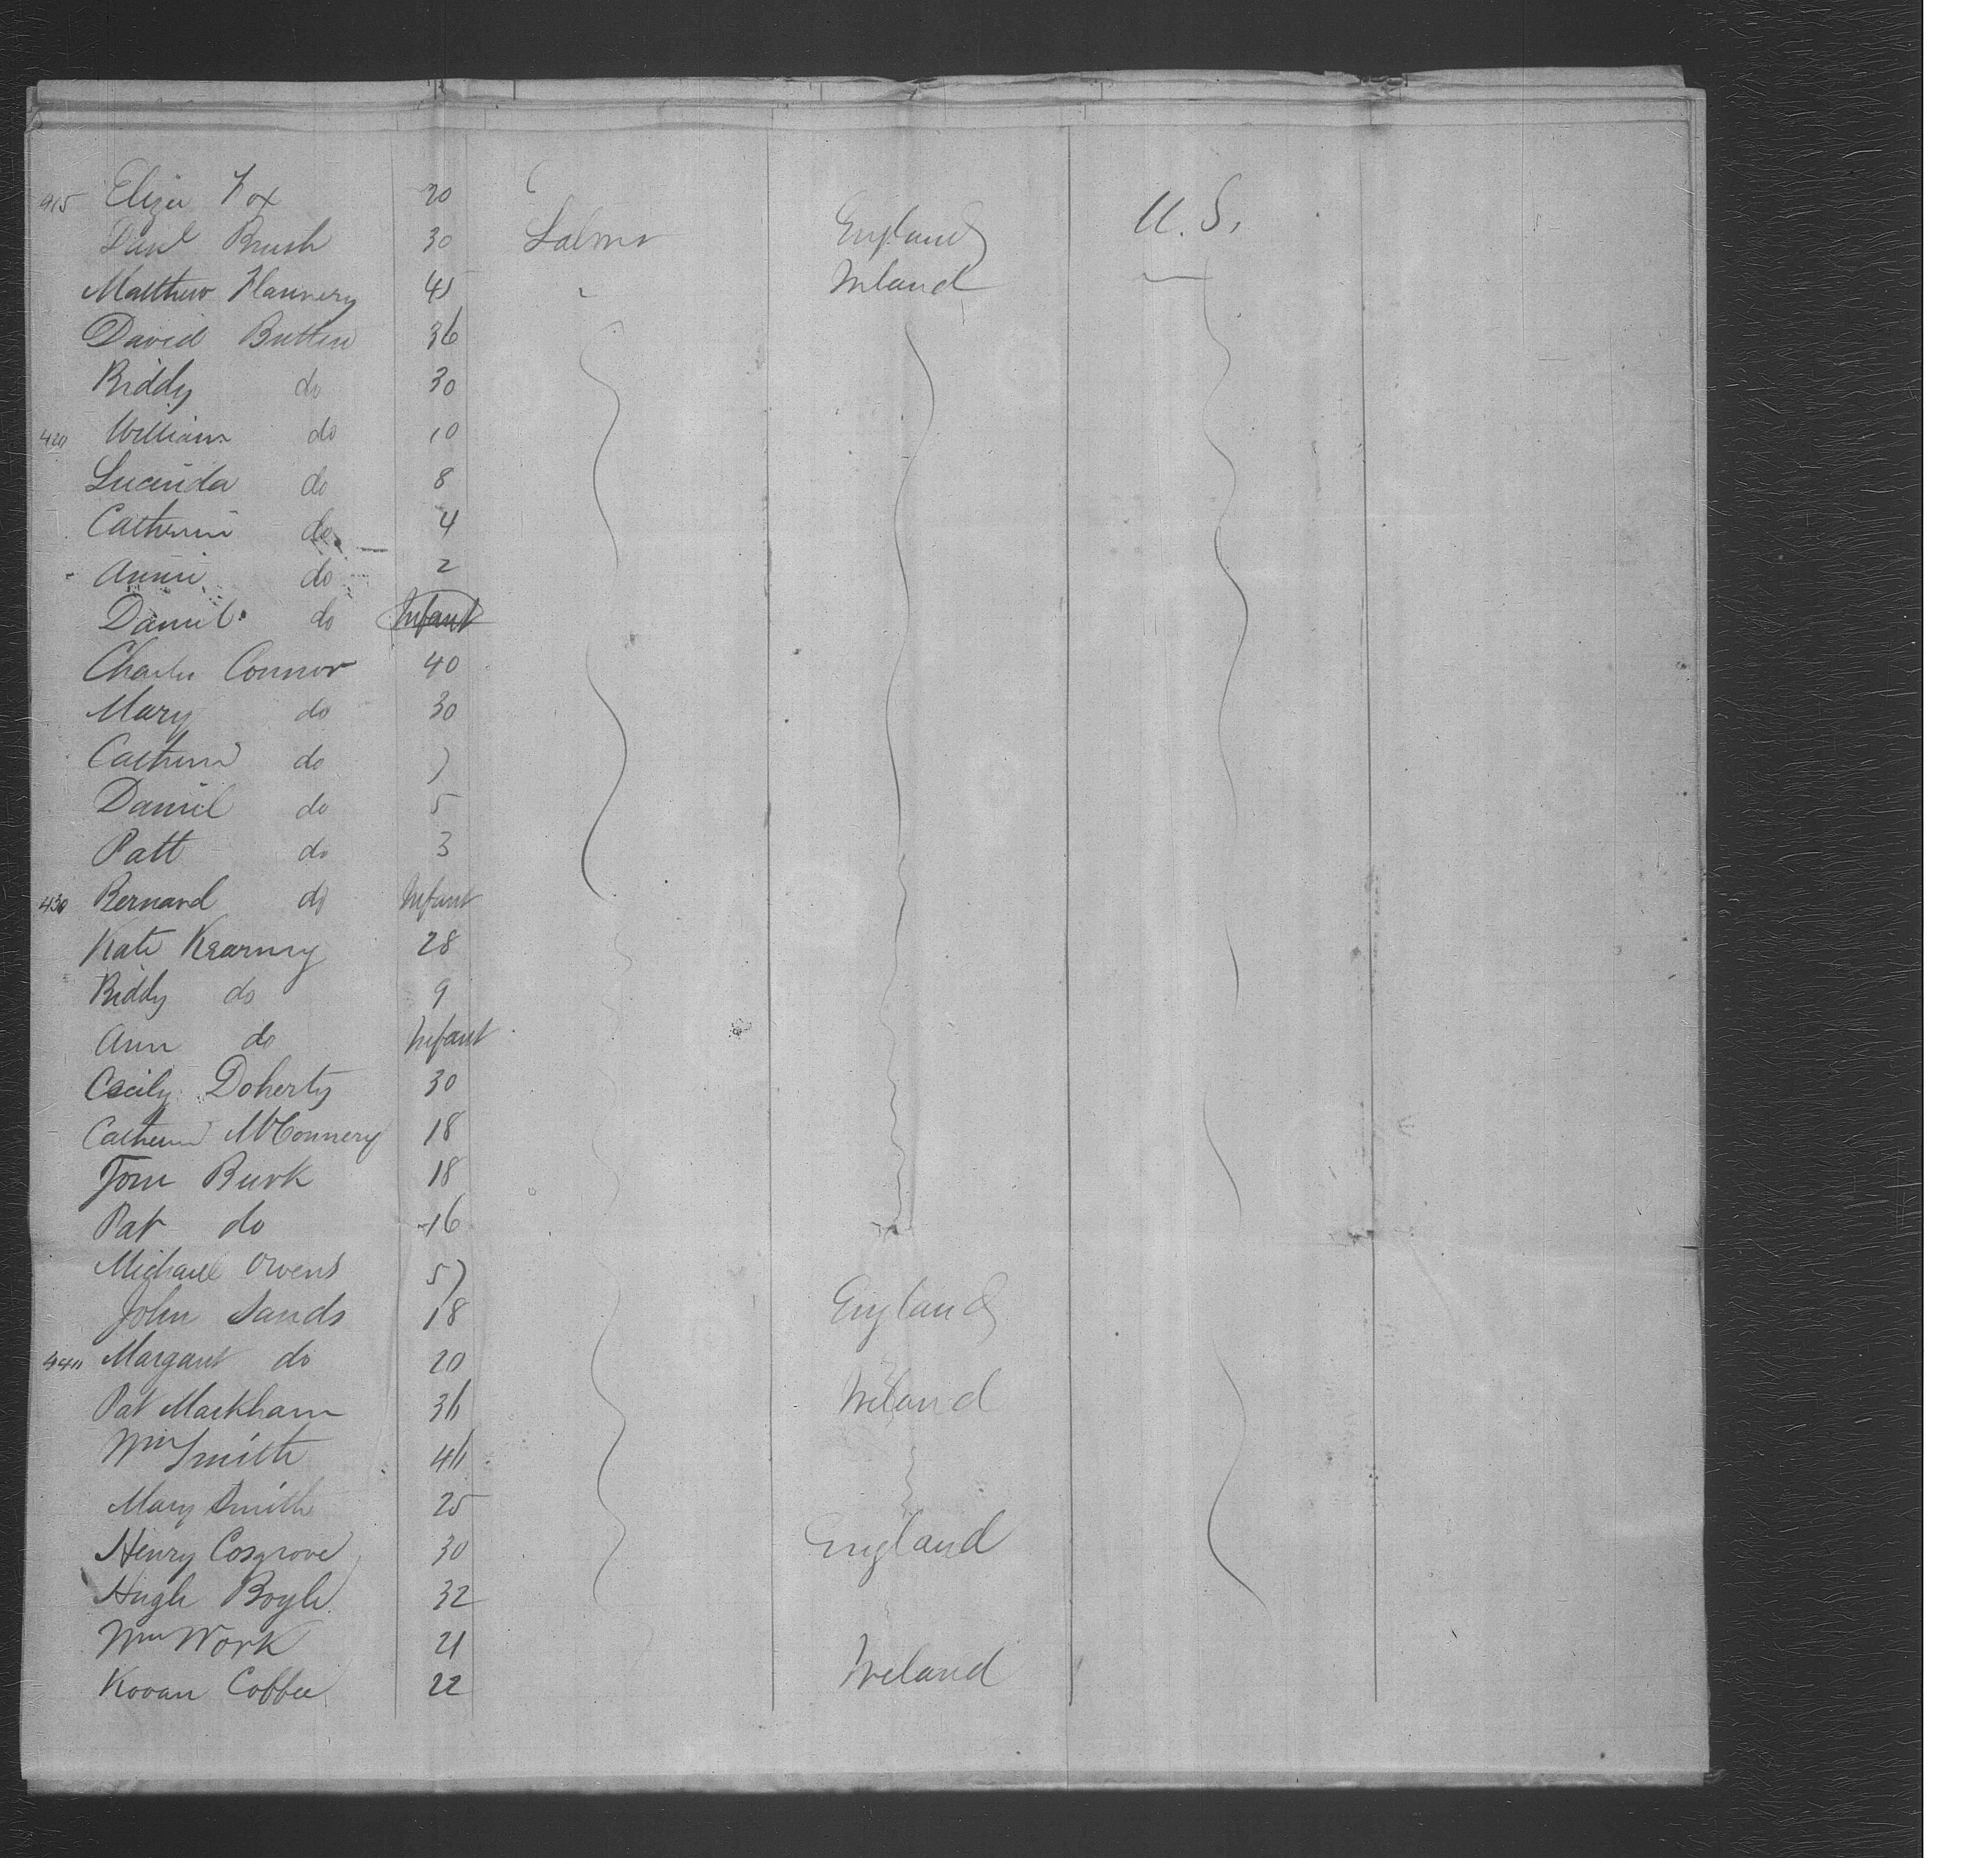 415 Eliza Fox 20
Danl Brush 30 Labor England U. S.
Matthew Flannery 45 " Ireland —
David Button 36
Biddy do 30
420 William do 10
Lucinda do 8
Catherine do 4
Annie do 2
Daniel do Infant
Charles Connor 40
Mary do 30
Catherine do 7
Daniel do 5
Patt do 3
430 Bernard do Infant
Kate Kearney 28
Biddy do 9
Ann do Infant
Cecily Doherty 30
Catherine McConnery 18
Tom Burk 18
Pat do 16
Michael Owens 57
John Sands 18 England
440 Margaret do 20
Pat Markham 36 Ireland
Wm Smith 46
Mary Smith 25
Henry Cosgrove 30 England
Hugh Boyle 32
Wm Work 21
Coffee 22 Ireland